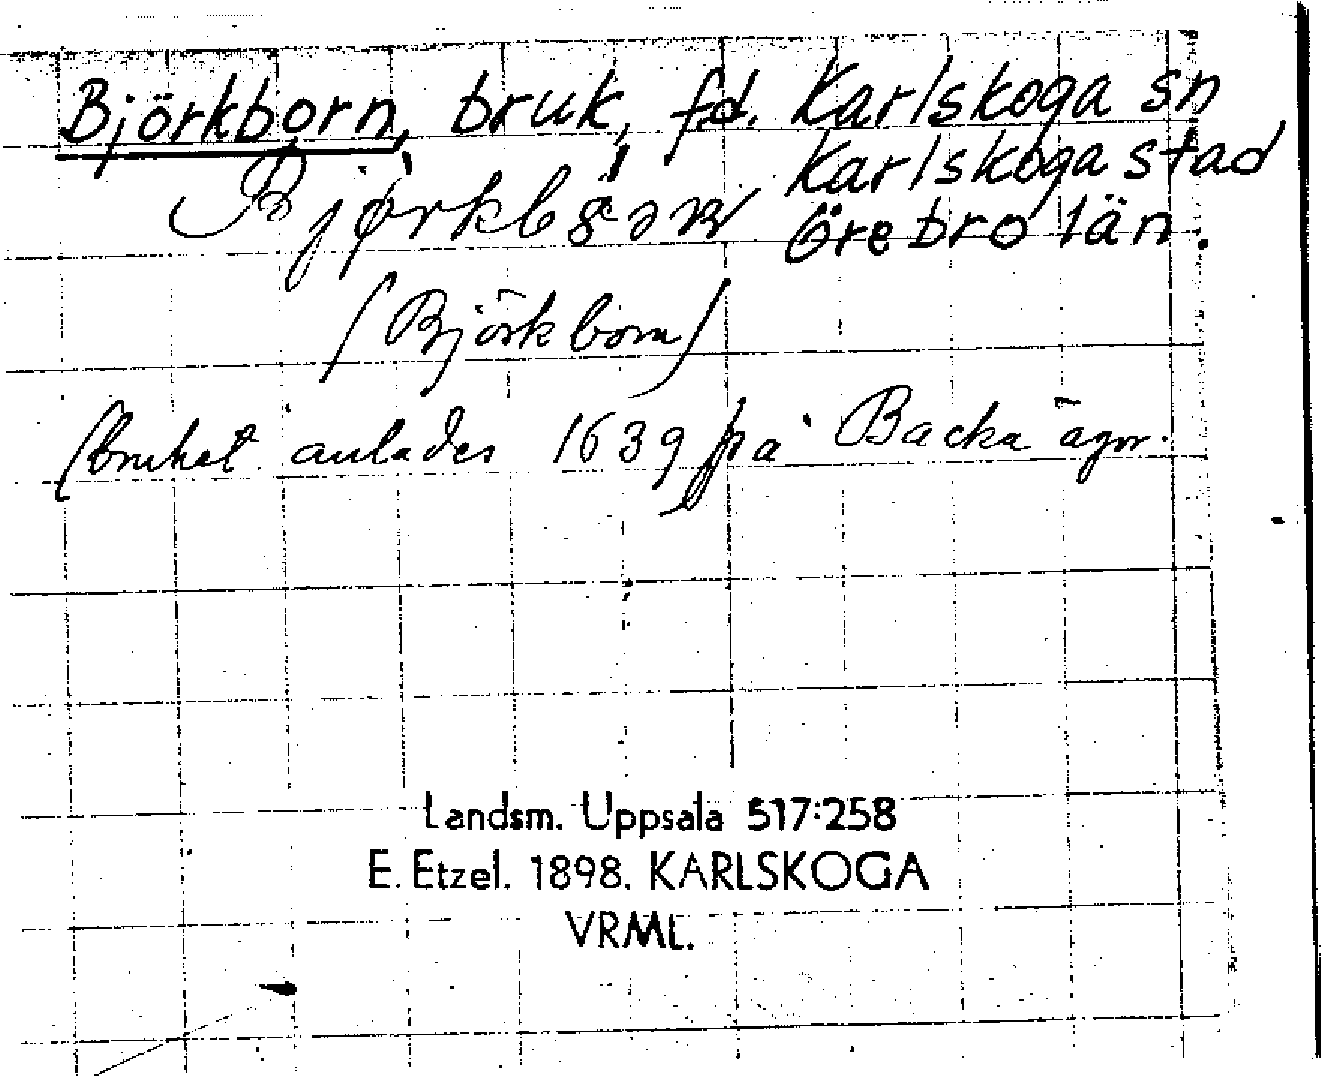 Björkborn, bruk, fd. Karlskoga sn
Karlskoga stad
Örebro län.
(Björkborn)
(bruket anlades 1639 på Backa ägor.
Landsm. Uppsala 517:258
E. Etzel. 1898. KARLSKOGA
VRML.